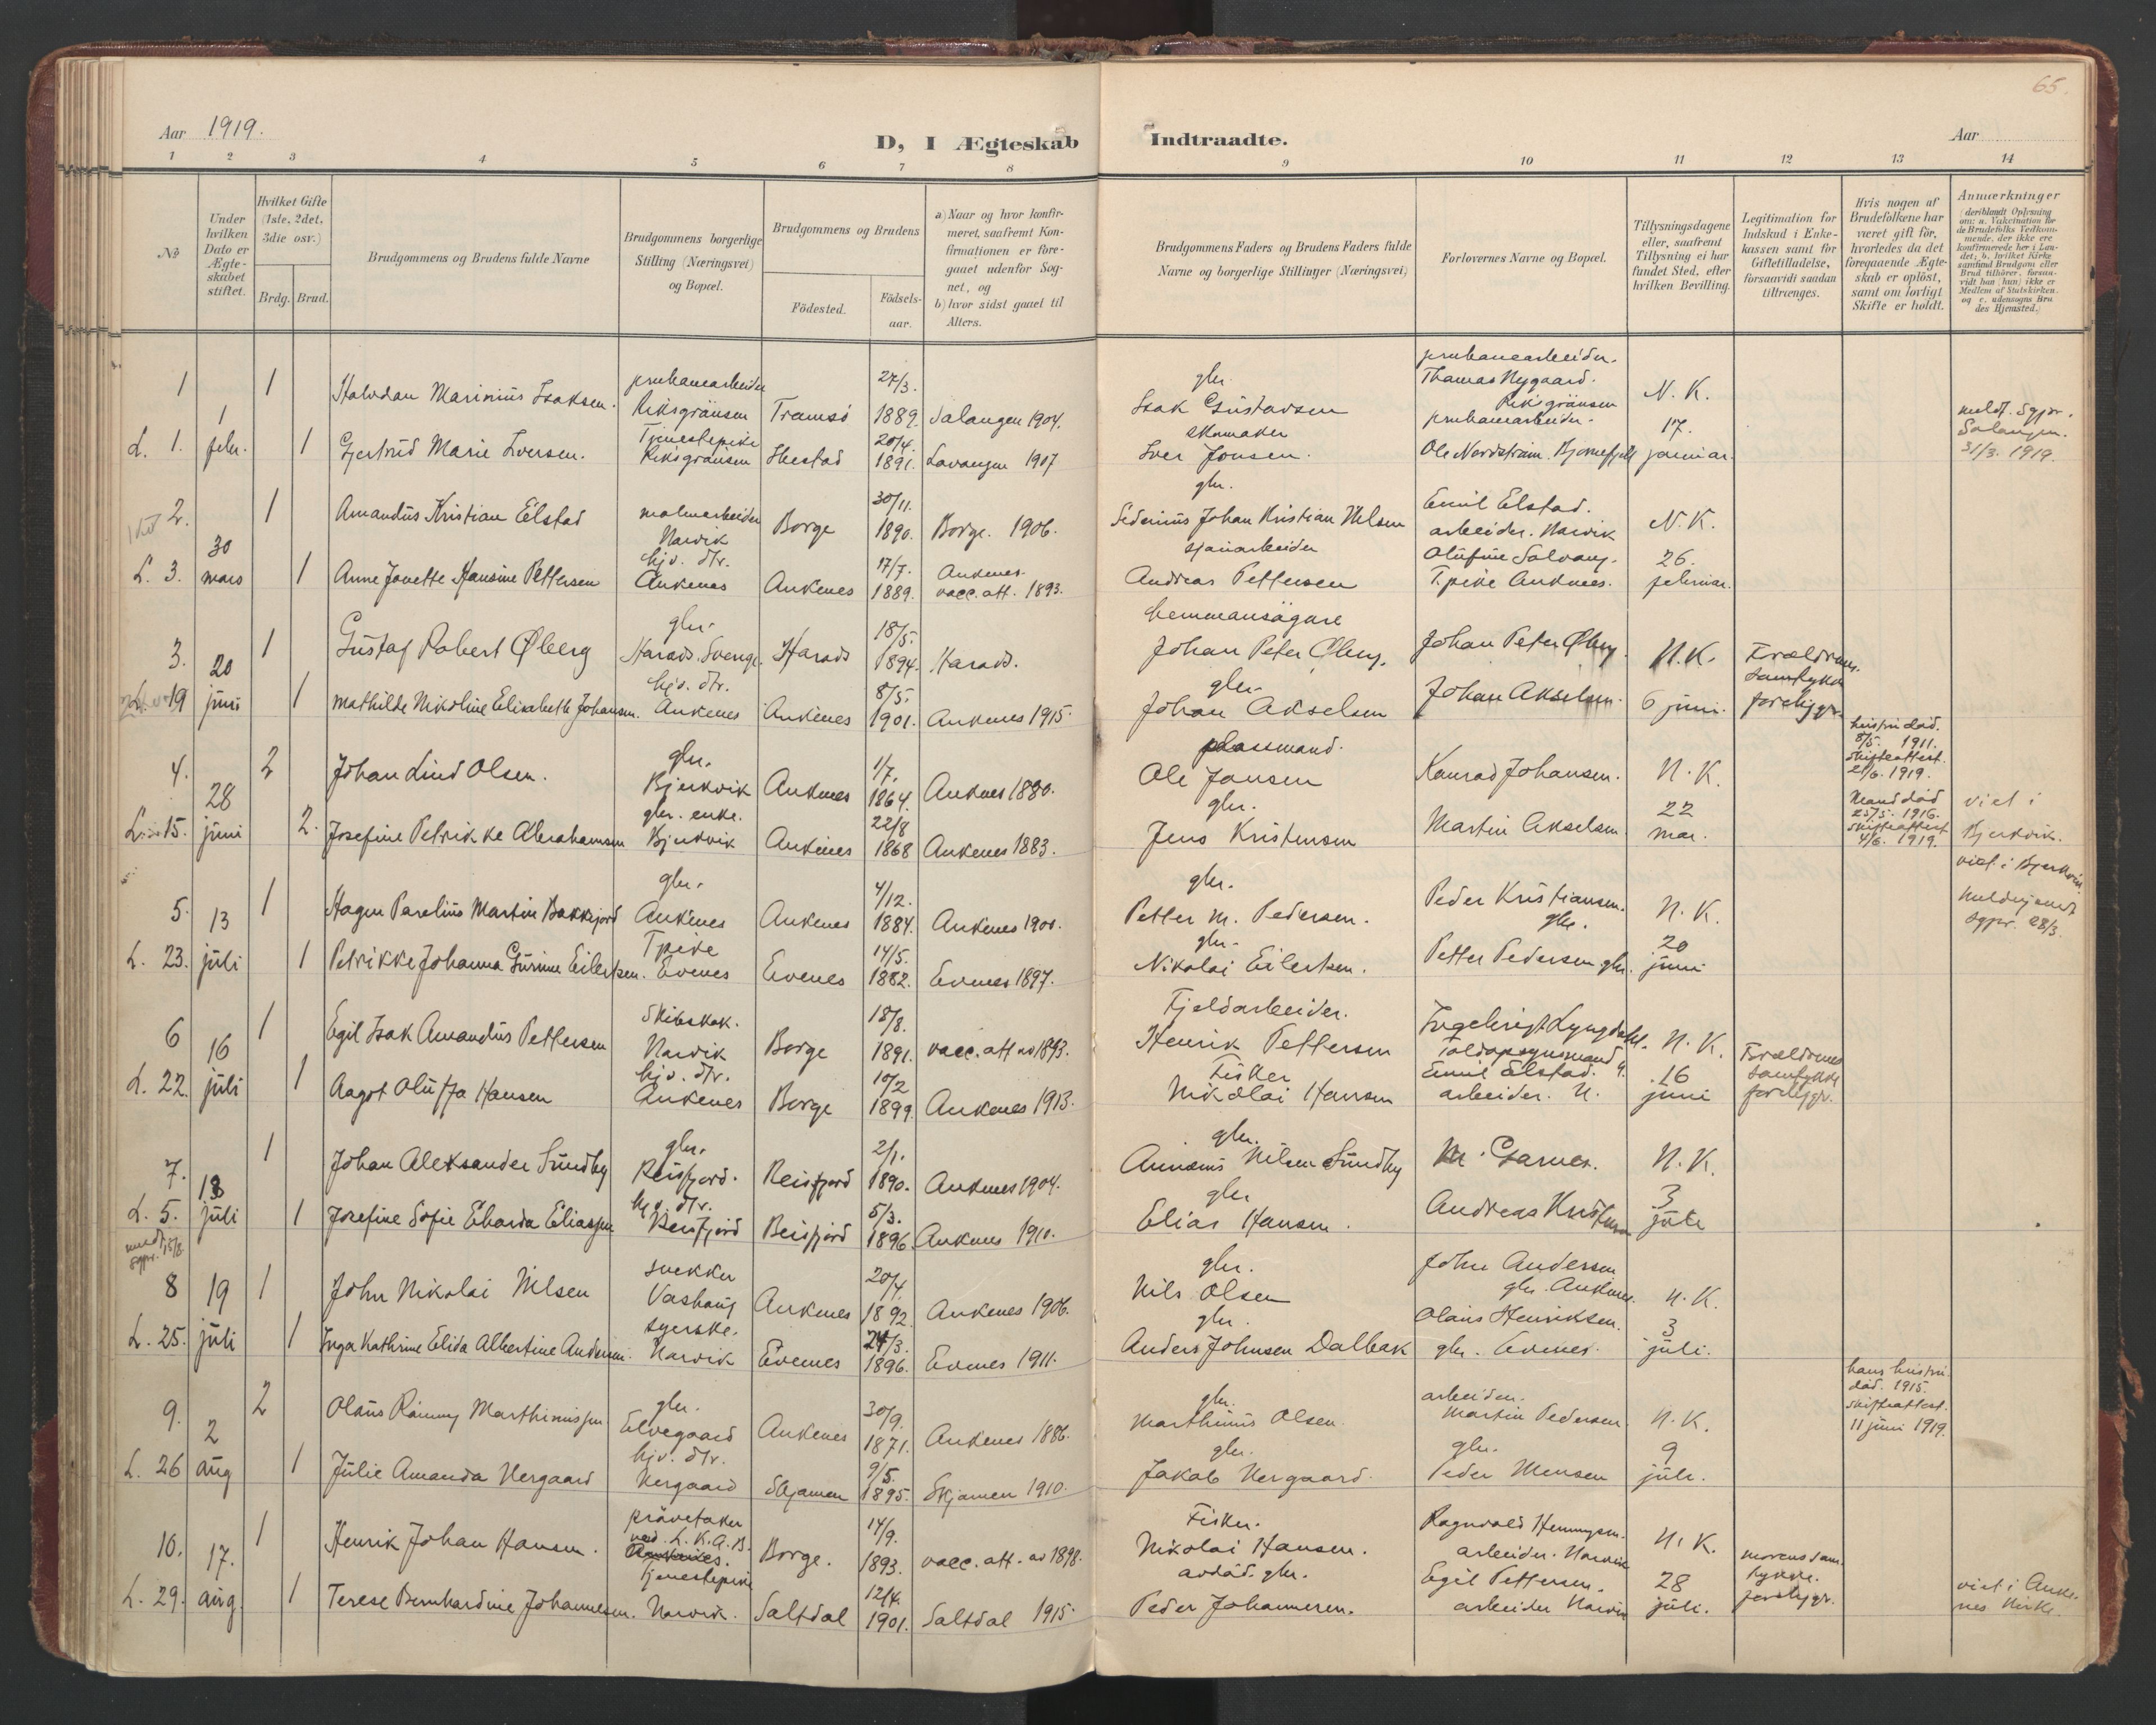 65.
Aar 1919.
D, I Ægteskab Indtraadte.
Aar
1 2 3 4 5 6 7 8 9 10 11 12 13 14
No
Under hvilken Dato er Ægteskabet stiftet.
Hvilket Gifte (1ste, 2det, 3die osv.)
Brdg. Brud.
Brudgommens og Brudens fulde Navne
Brudgommens borgerlige Stilling (Næringsvei) og Bopæl.
Brudgommens og Brudens
Födested.
Födselsaar.
a) Naar og hvor konfirmeret, saafremt Konfirmationen er foregaaet udenfor Sognet, og
b) hvor sidst gaaet til Alters.
Brudgommens Faders og Brudens Faders fulde Navne og borgerlige Stillinger (Næringsvei)
Forlovernes Navne og Bopæl.
Tillysningsdagene eller, saafremt Tillysning ei har fundet Sted, efter hvilken Bevilling.
Legitimation for Indskud i Enkekassen samt for Giftetilladelse, forsaavidt saadan tiltrænges.
Hvis nogen af Brudefolkene har været gift för, hvorledes da det foregaaende Ægteskab er oplöst, samt om lovligt Skifte er holdt.
Anmærkninger (deriblandt Oplysning om: a. Vakcination for de Brudefolks Vedkommende, der ikke ere konfirmerede her i Landet; b. hvilket Kirkesamfund Brudgom eller Brud tilhörer, forsaavidt han (hun) ikke er Medlem af Statskirken, og c. udensogns Brudes Hjemsted.)
1 1 Halvdan Marinius Isaksen. Riksgränsen Tromsö 27/3. 1889. Salangen 1904. gbr. Isak Gustavsen Thomas Nygaard. Riksgränsen N. K.
L. 1. 1 febr. 1 Gjertrud Marie Iversen. Tjenestepike Riksgränsen Ibestad 20/4. 1891. Lavangen 1907 skomaker Iver Jonsen. Ole Nordström. Bjørnefjell 17. januar. meldt. Sgpr. Salangen. 31/3. 1919.
2. 1 Amandus Kristian Elstad malmarbeider Narvik Borge 30/11. 1890. Borge. 1906. gbr. Sidenius Johan Kristian Nilsen Emil Elstad. arbeider. Narvik N. K.
L. 3. 30 mars 1 Anne Jonette Hansine Pettersen hjv. dtr. Ankenes Ankenes 17/7. 1889. Ankenes. vacc. att. 1893. sjauarbeider Andreas Pettersen Olufine Solvang. T.pike Ankenes. 26. februar.
3. 1 Gustaf Robert Øberg gbr. Harads. Sverige. Harads 18/5. 1894. Harads. hemmansägare Johan Peter Øberg. Johan Peter Øberg. N. K. Forældrenes samtykke foreligger.
19 20 juni 1 Mathilde Nikoline Elisabeth Johansen. hjv. dtr. Ankenes Ankenes 8/5. 1901. Ankenes 1915. gbr. Johan Akselsen Johan Akselsen. 6 juni.
4. 2 Johan Lind Olsen. gbr. Bjerkvik Ankenes 1/7. 1864. Ankenes 1880. plassmand. Ole Jansen Konrad Johansen. N. K. hustru död. 8/5. 1911. Skifteattest. 21/6. 1919.
L. 15. 28 juni 2. Josefine Petrikke Abrahamsen gbr. enke. Bjerkvik Ankenes 22/8 1868 Ankenes 1883. gbr. Jens Kristensen Martin Akselsen 22 mar. Mand död 25/5. 1916. Skifteattest 4/6. 1919. viet i Bjerkvik.
5. 1 Hagen Parelius Martin Bakkejord gbr. Ankenes Ankenes 4/12. 1884. Ankenes 1900. gbr. Petter M. Pedersen. Peder Kristiansen. gbr. N. K. viet i Bjerkvik.
L. 23. 13 juli 1 Petrikke Johanna Gurine Eilertsen. T.pike Evenes Evenes 14/5. 1882. Evenes 1897. gbr. Nikolai Eilertsen. Petter Pedersen gbr. 20 juni sgpr. 28/3.
6 1 Egil Isak Amandus Pettersen Skibskok. Narvik Borge 18/8. 1891. vacc. att. av 1893. Fjeldarbeider. Henrik Pettersen Ingebrigt Lyngdahl. N. K. Forældrenes samtykke foreligger.
L. 22. 16 juli 1 Aagot Oluffa Hansen hjv. dtr. Ankenes Borge 10/2 1899. Ankenes 1913. Fisker Nikolai Hansen Emil Elstad. arbeider. N. 16 juni
7. 1 Johan Aleksander Sundby gbr. Beisfjord. Beisfjord 2/1. 1890. Ankenes 1904. gbr. Nilsen Sundby M. Garnes. N. K.
L. 5. 13 juli 1 Josefine Sofie Edvarda Eliassen hjv. dtr. Beisfjord Beisfjord 5/3. 1896. Ankenes 1910. gbr Elias Hansen. Andreas Kristensen 3 juli
8 1 John Nikolai Nilsen snekker Vashaug Ankenes 20/4. 1892. Ankenes 1906. gbr. Nils Olsen John Andersen gbr. Ankenes. N. K.
L. 25. 19 juli 1 Inga Kathrine Elida Albertine Andersen. syerske. Narvik Evenes 24/3. 1896. Evenes 1911. gbr. Anders Johnsen Dalbak Olaus Henriksen. gbr. Evenes. 3 juli.
9. 2 Olaus Marthinussen gbr. Elvegaard Ankenes 30/9. 1871. Ankenes 1886. gbr. Marthinus Olsen. arbeider. Martin Pedersen N. K. hans hustru död. 1915. Skifteattest. 11 juni 1919.
L. 26 2 aug 1 Julie Amanda Nergaard hjv. dtr. Nergaard Skjomen 9/5. 1895. Skjomen 1910. gbr. Jakob Nergaard. gbr. Peder Monsen 9 juli.
10. 1 Henrik Johan Hansen. prövetaker ved L. K. A. B. Borge. 14/9. 1893. vacc. att. av 1898. Fisker. Nikolai Hansen. Ragnvald Henningsen. arbeider. Narvik N. K. morens samtykke foreligger.
L. 29. 17. aug. 1 Terese Bernhardine Johannesen. Tjenestepike Narvik. Saltdal 12/4. 1901. Saltdal 1915. avdöd gbr. Peder Johannesen. Egil Pettersen. arbeider Narvik 28 juli. viet i Ankenes kirke.